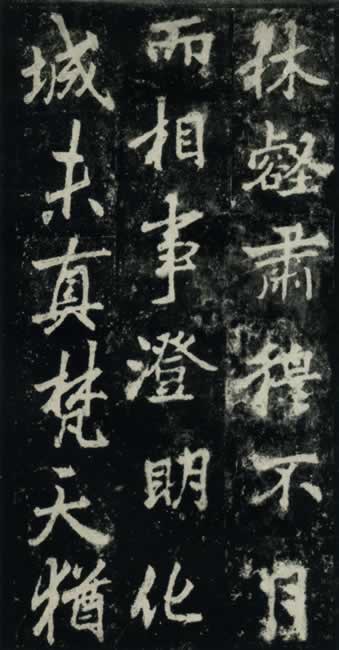 林壑肅穆不月
而相事澄明化
城未真梵天猶